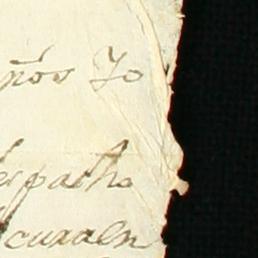 ños Yo
espacho
curaen